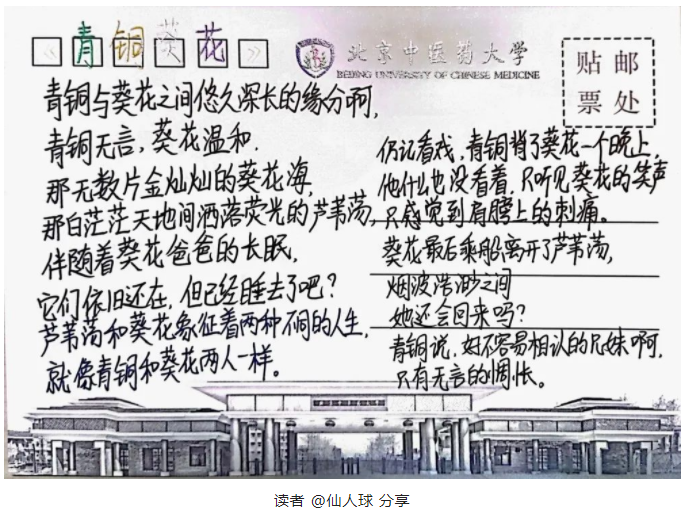 青铜葵花
北京中医药大学
BEIJING UNIVERSITY OF CHINESE MEDICINE
贴邮
票处
青铜与葵花之间悠久深长的缘分啊，
青铜无言，葵花温和.
那无数片金灿灿的葵花海，
那白茫茫天地间洒落荧光的芦苇荡，
伴随着葵花爸爸的长眠，
它们依旧还在，但已经睡去了吧？
芦苇荡和葵花象征着两种不同的人生，
就像青铜和葵花两人一样。
仍记看戏，青铜背了葵花一个晚上，
他什么也没看着，只听见葵花的笑声
只感觉到肩膀上的刺痛。
葵花最后乘船离开了芦苇荡，
烟波浩渺之间
她还会回来吗？
青铜说，好不容易相认的兄妹啊，
只有无言的惆怅。
读者 @仙人球 分享